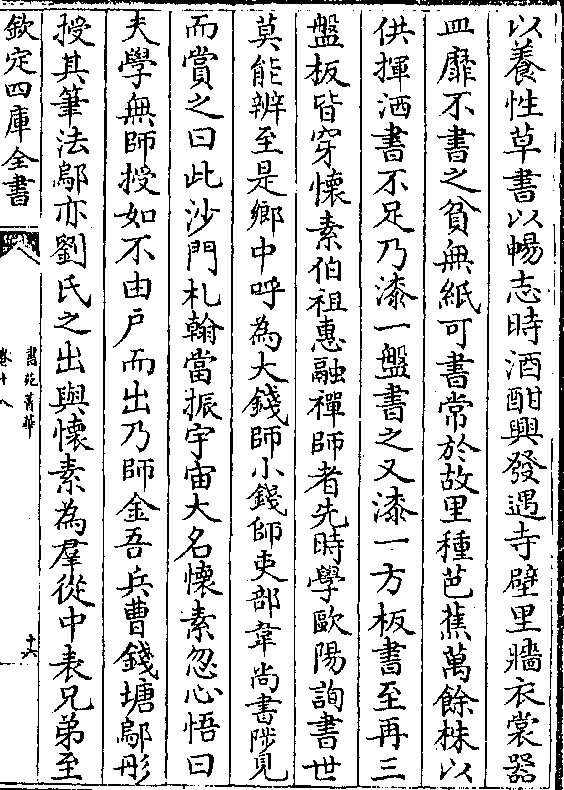 以養性草書以暢志時酒酣興發遇寺壁里牆衣裳器
皿靡不書之貧無紙可書常於故里種芭蕉萬餘株以
供揮洒書不足乃漆一盤書之又漆一方板書至再三
盤板皆穿懷素伯祖惠融禪師者先時學歐陽詢書世
莫能辨至是鄉中呼為大錢師小錢師吏部韋尚書陟見
而賞之曰此沙門札翰當振宇宙大名懷素忽心悟曰
夫學無師授如不由戶而出乃師金吾兵曹錢塘鄔彤
授其筆法鄔亦劉氏之出與懷素為羣從中表兄弟至
欽定四庫全書
書苑菁華
卷十八
十六